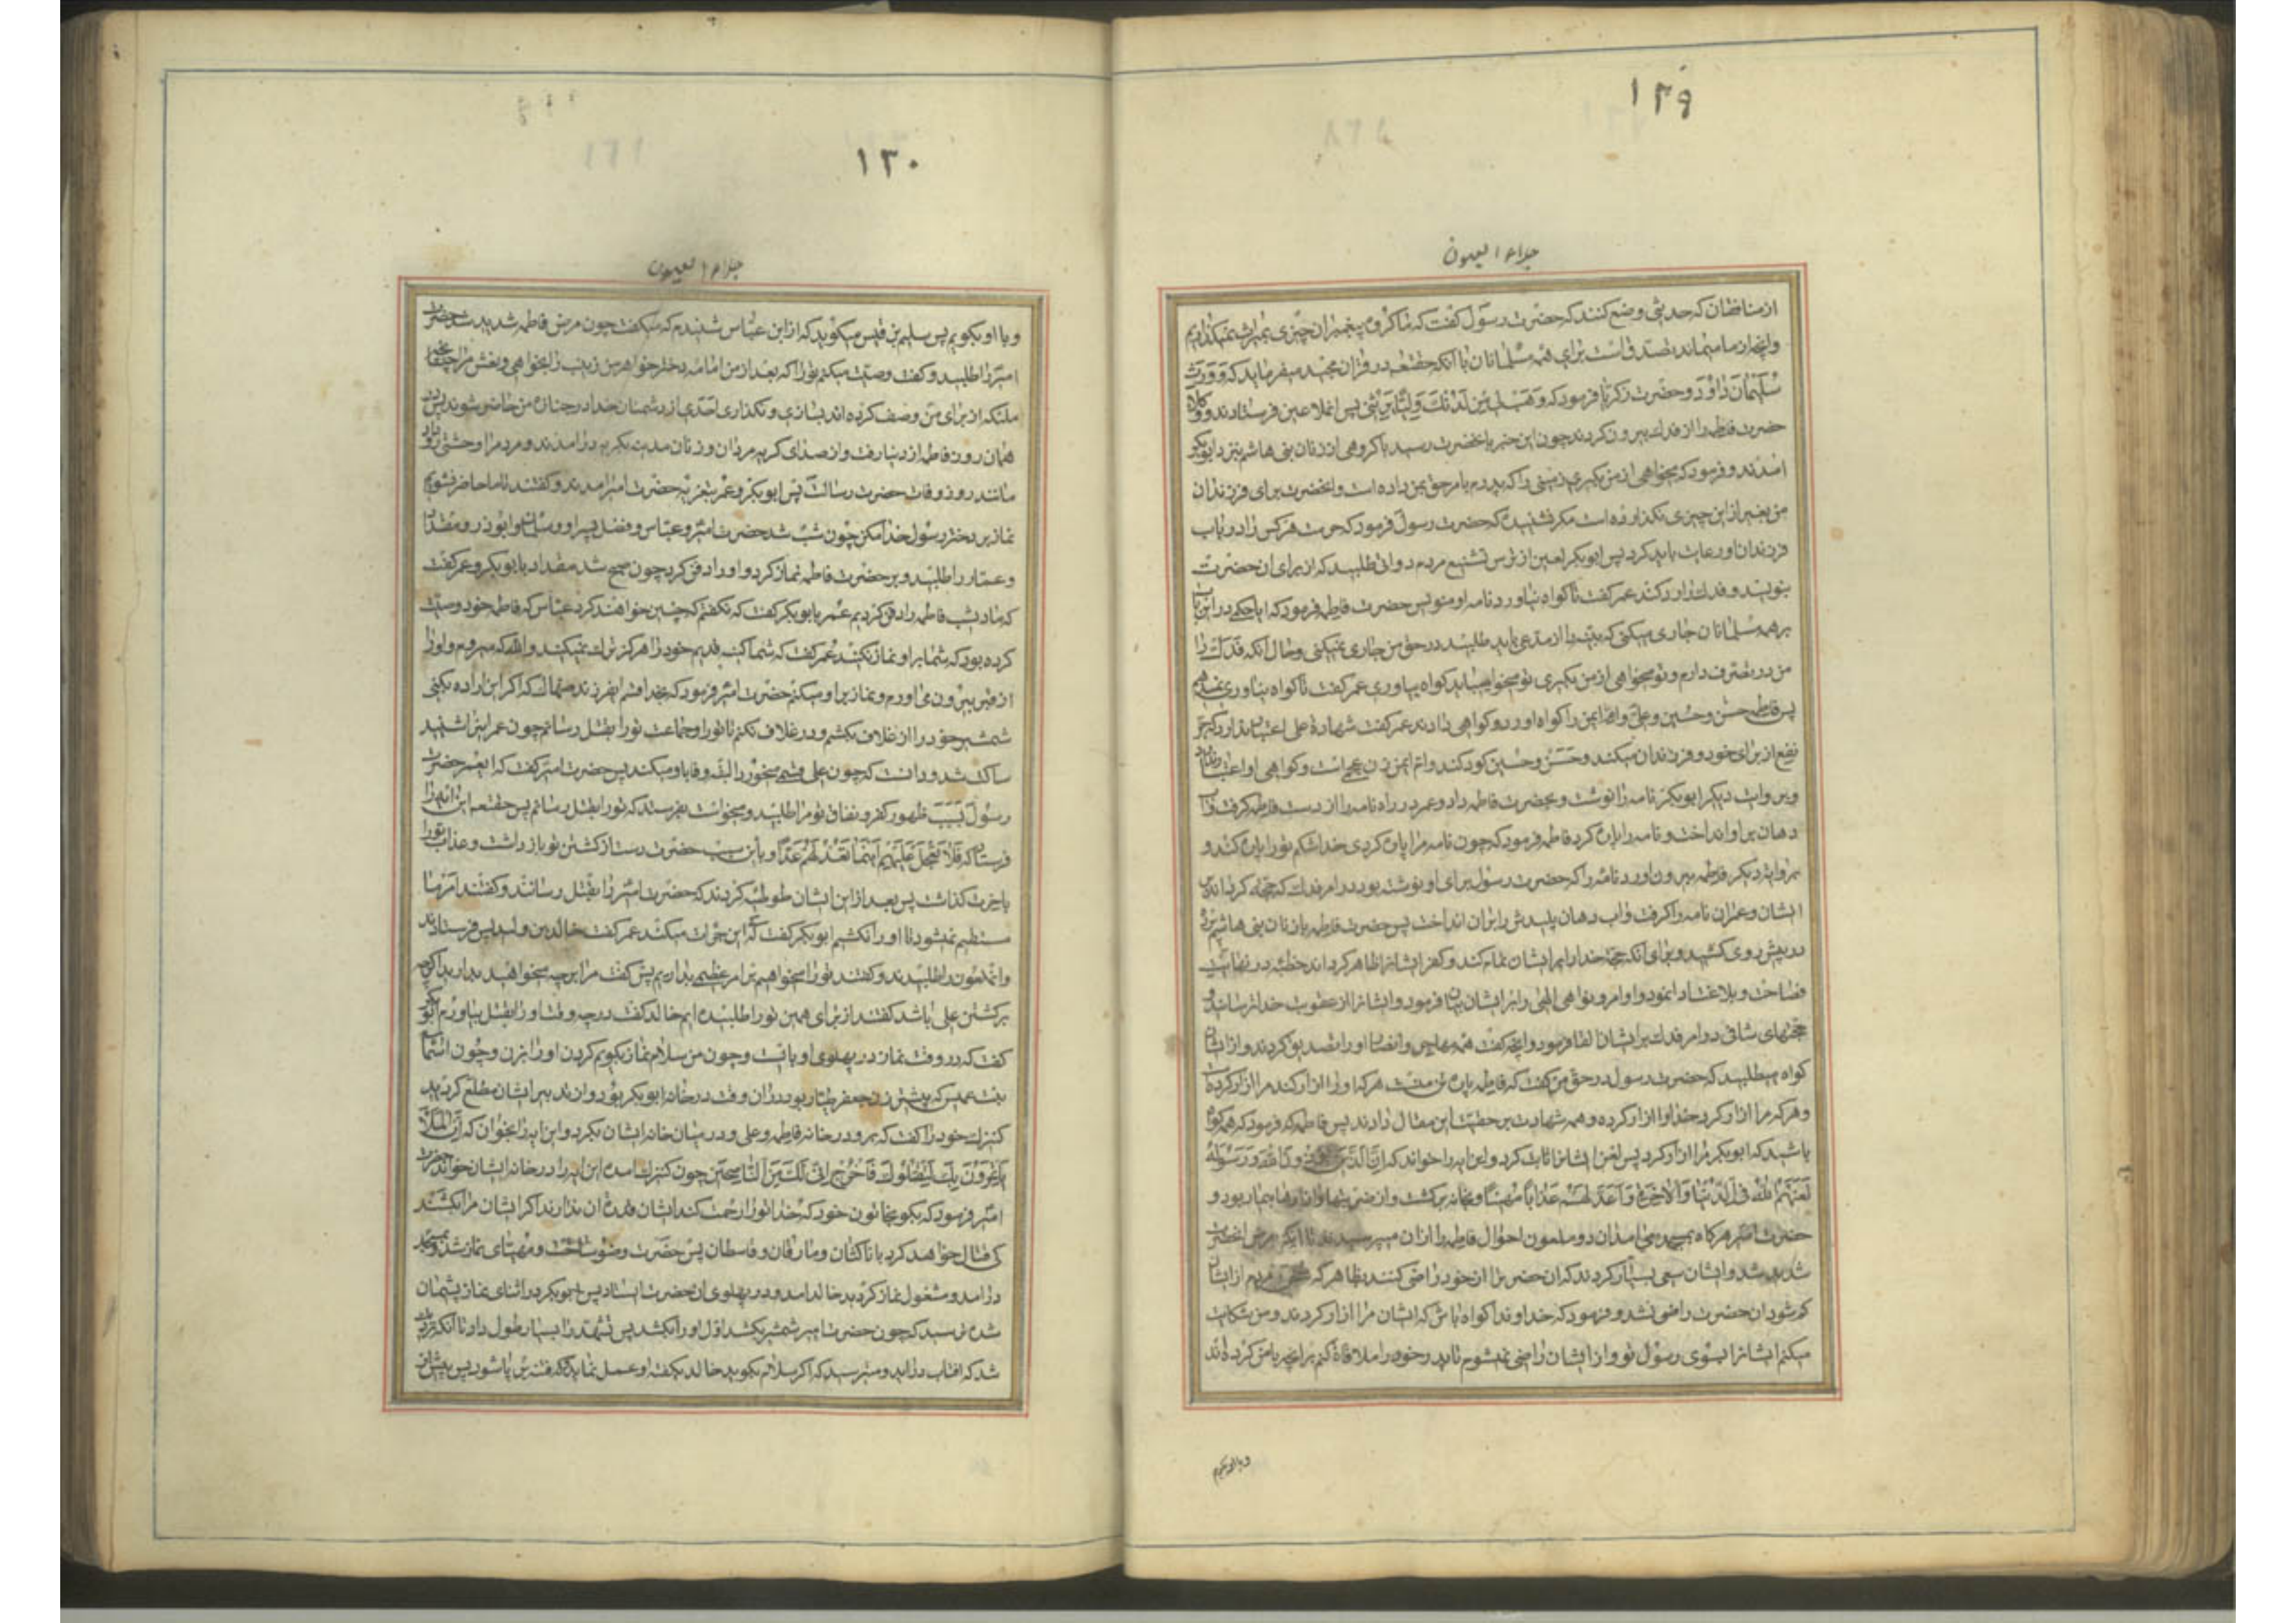 ۱۲۹
جلاء العیون
از منافقان که حدیثی وضع کنند که حضرت رسول گفت که ما گروه پیغمبران چیزی بمیراث نمیگذاریم
وانچه از ما میماند تصدق است برای همه مسلمانان با آنکه حقتعالی در قران مجید میفرماید که وَوَرِثَ
سُلَیْمانُ داوُدَ و حضرت زکریا فرمود که وَهَبْ لی مِن لَدُنْکَ وَلِیّاً یَرِثُنی پس انملاعین فرستادند و وکلای
حضرت فاطمه را از فدک بیرون کردند چون این خبر بانحضرت رسید با گروهی از زنان بنی هاشم بنزد ابوبکر
امدند و فرمود که میخواهی از من بگیری زمینی را که پدرم بامر حق بمن داده است و انحضرت برای فرزندان
من بغیر از این چیزی نگذارده است مگر نشنیده که حضرت رسول فرمود که حرمت هر کس را در باب
فرزندان او رعایت باید کرد پس ابوبکر لعین از ترس تشنیع مردم دواتی طلبید که از برای ان حضرت
بنویسد و فدک را رد کند عمر گفت تا گواه نیاورد نامه او منویس حضرت فاطمه فرمود که ایا حکمی در این باب
بر همه مسلمانان جاری میکنی که بینه را از مدعی باید طلبید در حق من جاری نمیکنی و حال آنکه فدک را
من در تصرف دارم و تو میخواهی از من بگیری تو میخواهی باید گواه بیاوری عمر گفت تا گواه نیاوری نمیدهیم
پس فاطمه حسن و حسین و علی و ام ایمن را گواه اورد و گواهی دادند عمر گفت شهادة علی اعتبار ندارد که جر
نفع از برای خود و فرزندان میکند و حسن و حسین کودکند و ام ایمن زن عجمی است و گواهی او اعتبار ندارد
و بروایت دیگر ابوبکر نامه را نوشت و بحضرت فاطمه داد و عمر در راه نامه را از دست فاطمه گرفت و اب
دهان بر او انداخت و نامه را پاره کرد فاطمه فرمود که چون نامه مرا پاره کردی خدا شکم تو را پاره کند و
بروایة دیگر فاطمه بیرون اورد نامه را که حضرت رسول برای او نوشته بود در امر فدک که حجة گرداند بر
ایشان و عمر ان نامه را گرفت و اب دهان پلیدش را بران انداخت پس حضرت فاطمه با زنان بنی هاشم پرده
در پیش روی کشید و برای انکه حجة خدا را بر ایشان تمام کند و کفر ایشانرا ظاهر گرداند خطبه در نهایت
فصاحت و بلاغت ادا نمود و اوامر و نواهی الهی را بر ایشان بیان فرمود و ایشانرا از عقوبت خدا ترسانید و
حجتهای شافی در امر فدک بر ایشان القا فرمود و انچه گفت همه مهاجر و انصار او را تصدیق کردند و از ایشان
گواه میطلبید که حضرت رسول در حق من گفت که فاطمه پاره تن منست هر که او را ازار کند مرا ازار کرده است
و هر که مرا ازار کرد خدا را ازار کرده و همه شهادت بر حقیت این مقال دادند پس فاطمه که فرمود که همه گواه
باشید که ابوبکر مرا ازار کرد پس لعن ایشانرا ثابت کرد و این ایه را خواند که اِنَّ الَّذینَ یُؤْذونَ اللهَ وَرَسُولَهُ
لَعَنَهُمُ اللهُ فِی الدُّنْیا وَالاخِرَةِ وَاَعَدَّ لَهُمْ عَذاباً مُهیناً و بخانه برگشت و از ضربتها و ازارها بیمار بود و
حضرت امیر هرگاه بمسجد می امد ان دو ملعون احوال فاطمه را از ان میپرسیدند تا انکه مرض انحضرت
شدید شد و ایشان سعی بسیار کردند که ان حضرت را از خود راضی کنند بظاهر که مردم از ایشان
کم شود ان حضرت راضی نشد و فرمود که خداوندا گواه باش که ایشان مرا ازار کردند و من شکایت
میکنم ایشانرا بسوی رسول تو و از ایشان راضی نمیشوم تا پدر خود را ملاقاة کنم بر انچه با من کرده اند
و با او بگویم
۱۳۰
جلاء العیون
و با او بگویم پس سلیم بن قیس میگوید که از ابن عباس شنیدم که میگفت چون مرض فاطمه شدید شد حضرت
امیر را طلبید و گفت وصیت میکنم تو را که بعد از من امامه دختر خواهر من زینب را بخواهی و نعش مرا چنانچه
ملئکه از برای من وصف کرده اند بسازی و نگذاری احدی از دشمنان خدا در جنازه من حاضر شوند پس در
همان روز فاطمه از دنیا رفت و از صدای گریه مردان و زنان مدینه بگریه درامدند و مردم را وحشتی رو داد
مانند روز وفات حضرت رسالت پس ابوبکر و عمر بتعزیه حضرت امیر امدند و گفتند تا ما حاضر نشویم
نماز بر دختر رسول خدا مکن چون شب شد حضرت امیر و عباس و فضل پسر او و سلمان و ابوذر و مقداد
و عمار را طلبید و بر حضرت فاطمه نماز کرد و او را دفن کرد چون صبح شد مقداد با ابوبکر و عمر گفت
که ما دیشب فاطمه را دفن کردیم عمر با ابوبکر گفت که نگفتم که چنین خواهند کرد عباس گفت فاطمه خود وصیت
کرده بود که شما بر او نماز نکنید عمر گفت که شما کینه قدیم خود را هرگز ترک نمیکنید والله که میروم و او را
از قبر بیرون می اورم و نماز بر او میکنم حضرت امیر فرمود که بخدا قسم ایفرزند صهاک که اگر این اراده بکنی
شمشیر خود را از غلاف بکشم و در غلاف نکنم تا تو را و جماعت تو را بقتل رسانم چون عمر این را شنید
ساکت شد و دانست که چون علی قسم میخورد البته وفا باو میکند پس حضرت امیر گفت که ایعمر حضرت
رسول بسبب ظهور کفر و نفاق تو مرا طلبید و میخواست بفرستد که تو را بقتل رسانم پس حقتعالی این ایه را
فرستاد که فَلا تَعْجَلْ عَلَیْهِمْ اِنَّما نَعُدُّ لَهُمْ عَدّاً و باین سبب حضرت دست از کشتن تو باز داشت و عذاب تو را
باخرت گذاشت پس بعد از این ایشان طوطئه کردند که حضرت امیر را بقتل رسانند و گفتند امر ما
مستقیم نمیشود تا او را نکشیم ابوبکر گفت که این جرات میکند عمر گفت خالد بن ولید پس فرستادند
و انملعون را طلبیدند و گفتند تو را میخواهیم بر امر عظیمی بداریم پس گفت مرا بر هر چه میخواهید بدارید اگرچه
بر کشتن علی باشد گفتند از برای همین تو را طلبیده ایم خالد گفت در چه وقت او را بقتل بیاورم ابوبکر
گفت که در وقت نماز در پهلوی او بایست و چون من سلام نماز بگویم گردن او را بزن و چون اسماء
بنت عمیس که پیشتر زن جعفر طیار بود در ان وقت در خانه ابوبکر بود و ان تدبیر ایشان مطلع گردید
کنیزک خود را گفت که برو در خانه فاطمه و علی و در میان خانه ایشان بگرد و این ایه را بخوان که اِنَّ الْمَلَأَ
یَأْتَمِرُونَ بِکَ لِیَقْتُلُوکَ فَاخْرُجْ اِنّی لَکَ مِنَ النّاصِحینَ چون کنیزک امد و این ایه را در خانه ایشان خواند حضرت
امیر فرمود که بگو بخاتون خود که خدا تو را رحمت کند ایشان قدرة ان ندارند اگر ایشان مرا بکشند
کی قتال خواهد کرد با ناکثان و مارقان و قاسطان پس حضرت وضو ساخت و مهیای نماز شد و بمسجد
درامد و مشغول نماز گردید خالد امد و در پهلوی ان حضرت ایستاد پس ابوبکر در اثنای نماز پشیمان
شده ترسید که چون حضرت امیر شمشیر بکشد اول او را بکشد پس تشهد را بسیار طول داد تا آنکه نزدیک
شد که افتاب دراید و میترسید که اگر سلام بگوید خالد بگفته او عمل نماید که فتنه بر پا شود پس پیش از